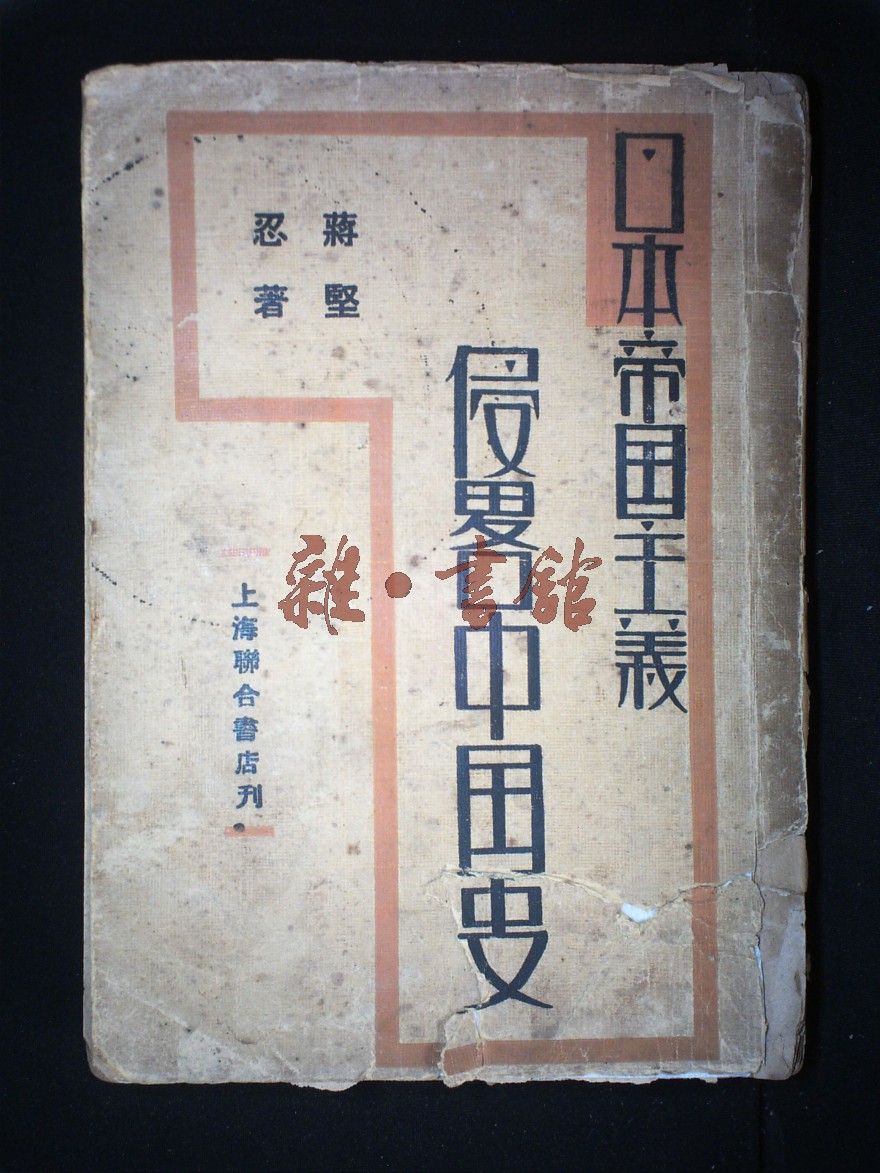 日本帝国主義
侵畧中国史
蔣堅
忍著
上海聯合書店刊
雜·書舘